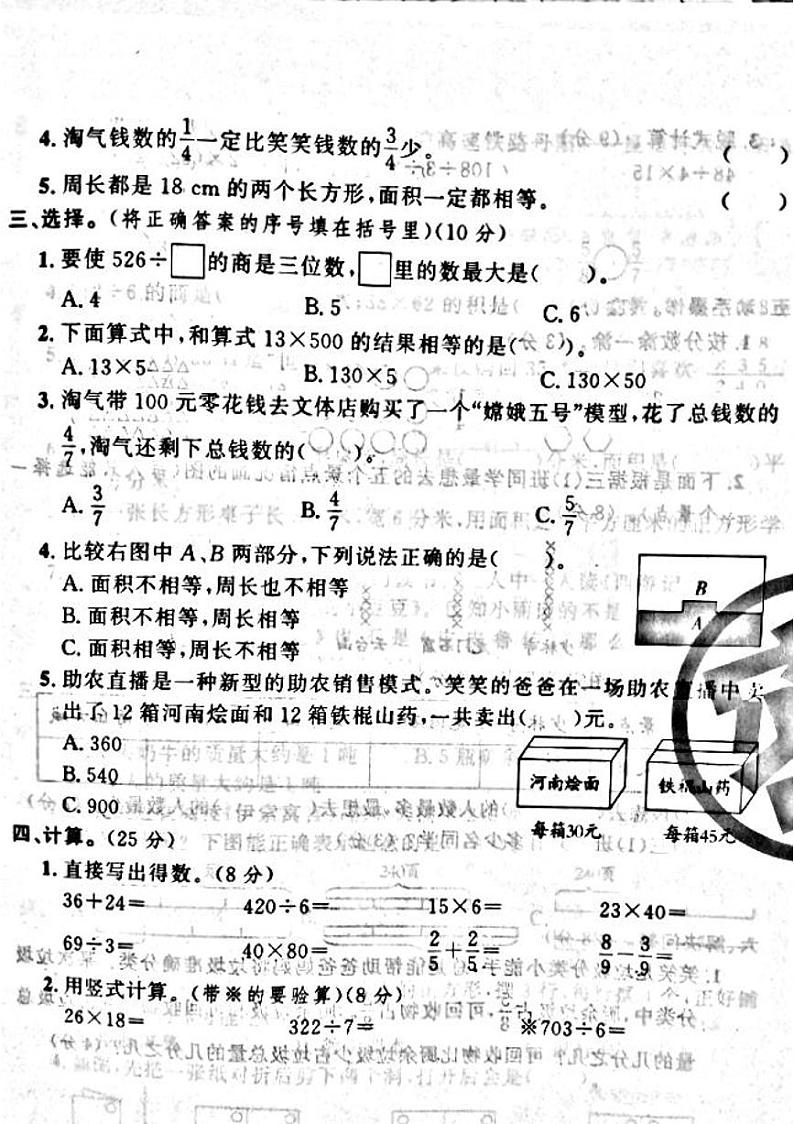 4. 淘气钱数的1/4一定比笑笑钱数的3/4少。 ( )
5. 周长都是 18 cm 的两个长方形,面积一定都相等。 ( )
三、选择。(将正确答案的序号填在括号里)(10 分)
1. 要使 526÷□的商是三位数,□里的数最大是( )。
A. 4 B. 5 C. 6
2. 下面算式中,和算式 13×500 的结果相等的是( )。
A. 13×5 B. 130×5 C. 130×50
3. 淘气带 100 元零花钱去文体店购买了一个“嫦娥五号”模型,花了总钱数的
4/7,淘气还剩下总钱数的( )。
A. 3/7 B. 4/7 C. 5/7
4. 比较右图中 A、B 两部分,下列说法正确的是( )。
A. 面积不相等,周长也不相等
B. 面积不相等,周长相等
C. 面积相等,周长不相等
B
A
5. 助农直播是一种新型的助农销售模式。笑笑的爸爸在一场助农直播中卖
出了 12 箱河南烩面和 12 箱铁棍山药,一共卖出( )元。
A. 360
B. 540
C. 900
河南烩面 铁棍山药
每箱30元 每箱45元
四、计算。(25 分)
1. 直接写出得数。(8 分)
36+24= 420÷6= 15×6= 23×40=
69÷3= 40×80= 2/5+2/5= 8/9-3/9=
2. 用竖式计算。(带※的要验算)(8分)
26×18= 322÷7= ※703÷6=